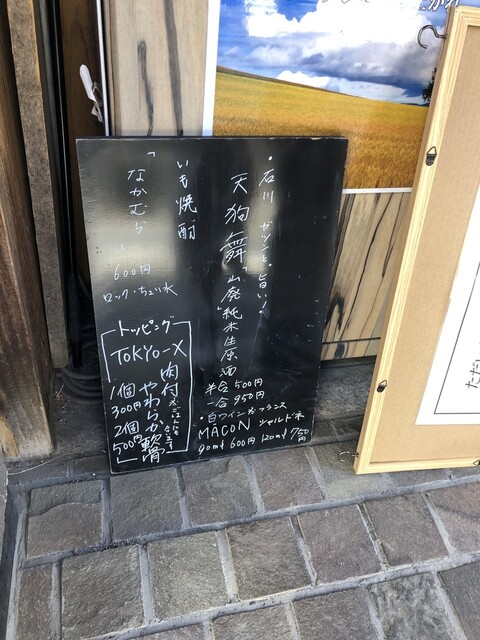 ・石川 ガツンと旨い!
天狗舞 「山廃」純米生原酒
半合 500円
一合 950円
・白ワイン フランス
MACON シャルドネ
90ml 600円 120ml 750円
いも焼酎
「なかむら」
600円
ロック・ちょい水
トッピング
TOKYO-X
肉付
やわらか軟骨
1個
300円
2個
500円
ただい